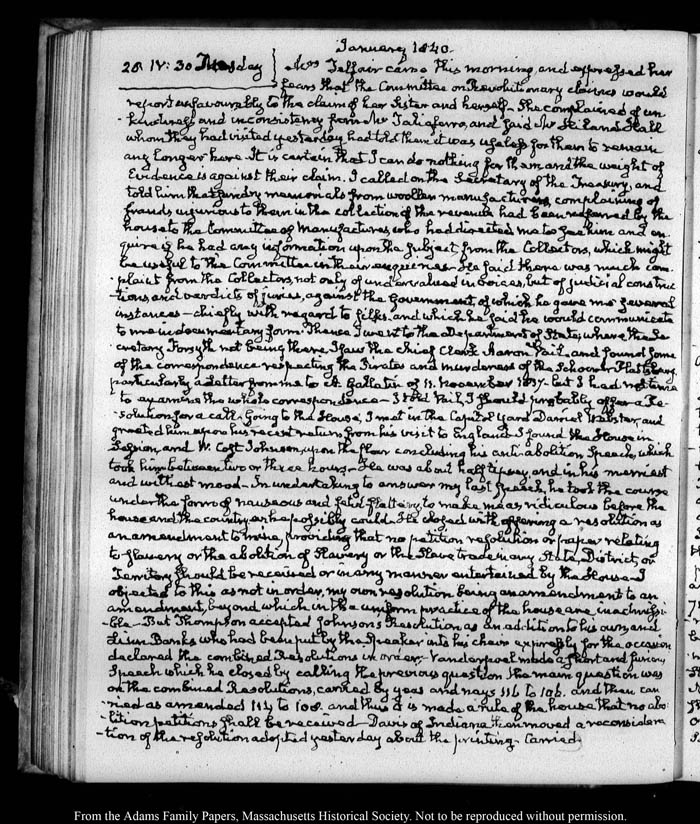 January 1840.
28. IV:30 Tuesday
Mrs Telfair came this morning, and expressed her
fears that the Committee on Revolutionary claims would
report unfavourably to the claim of her Sister and herself. She complained of un-
kindness and inconsistency from Mr Taliaferro, and said Mr Hiland Hall
whom they had visited yesterday had told them it was useless for them to remain
any longer here. It is certain that I can do nothing for them and the weight of
Evidence is against their claim. I called on the Secretary of the Treasury, and
told him that sundry memorials from woollen manufacturers, complaining of
frauds injurious to them in the collection of the revenue had been referred by the
house to the Committee of Manufactures, who had directed me to see him and en-
quire if he had any information upon the subject from the Collectors, which might
be useful to the Committee in their enquiries. He said there was much com-
plaint from the Collectors, not only of undervalued invoices, but of judicial construc
tions, and verdicts of juries, against the Government, of which he gave me several
instances—chiefly with regard to silks, and which he said he would communicate
to me in documentary form. Thence I went to the Department of State, where the Se-
cretary Forsyth not being there, I saw the Chief Clerk Aaron Vail, and found some
of the correspondence respecting the Pirates and murderers of the Schooner Plattsburg
particularly a letter from me to A. Gallatin of 11. November 1817. but I had not time
to examine the whole correspondence—I told Vail, I should probably offer a Re-
solution for a call. Going to the House, I met in the Capitol Yard Daniel Webster, and
greeted him upon his recent return from his visit to England. I found the House in
Session, and W. Cost Johnson, upon the floor concluding his anti-abolition Speech, which
took him between two or three hours. He was about half tipsey, and in his merriest
and wittiest mood—In undertaking to answer my last Speech, he took the course
under the form of nauseous and fetid flattery, to make me as ridiculous before the
house and the country as he possibly could. He closed with offering a resolution as
an amendment to mine, providing that no petition resolution or paper relating
to slavery or the abolition of Slavery or the Slave trade in any State, District, or
Territory should be received or in any manner entertained by the House—I
objected to this as not in order, my own resolution being an amendment to an
amendment, beyond which in the uniform practice of the house are inadmissi-
ble—But Thompson accepted Johnson's Resolution as an addition to his own, and
Linn Banks who had been put by the Speaker into his chair expressly for the occasion
declared the combined Resolutions in order. Vanderpoel made a short and furious
Speech which he closed by calling the previous question the main question was
on the combined Resolutions, carried by yeas and nays 116 to 106. and then car
ried as amended 114 to 108. and thus it is made a rule of the house that no abo-
lition petitions shall be received—Davis of Indiana then moved a reconsidera
tion of the resolution adopted yesterday about the printing. Carried.
From the Adams Family Papers, Massachusetts Historical Society. Not to be reproduced without permission.